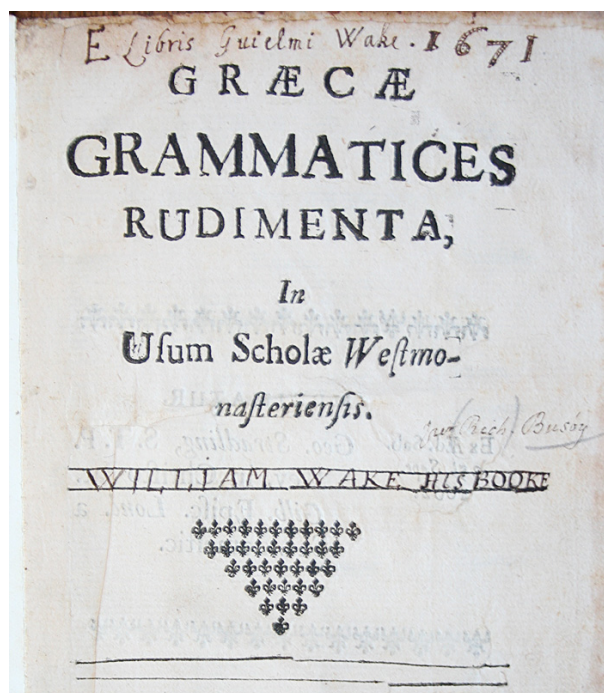 E Libris Guielmi Wake. 1671
GRÆCÆ
GRAMMATICES
RUDIMENTA,
In
Uſum Scholæ Weſtmo-
naſterienſis.
Rich. Busby
WILLIAM WAKE HIS BOOKE